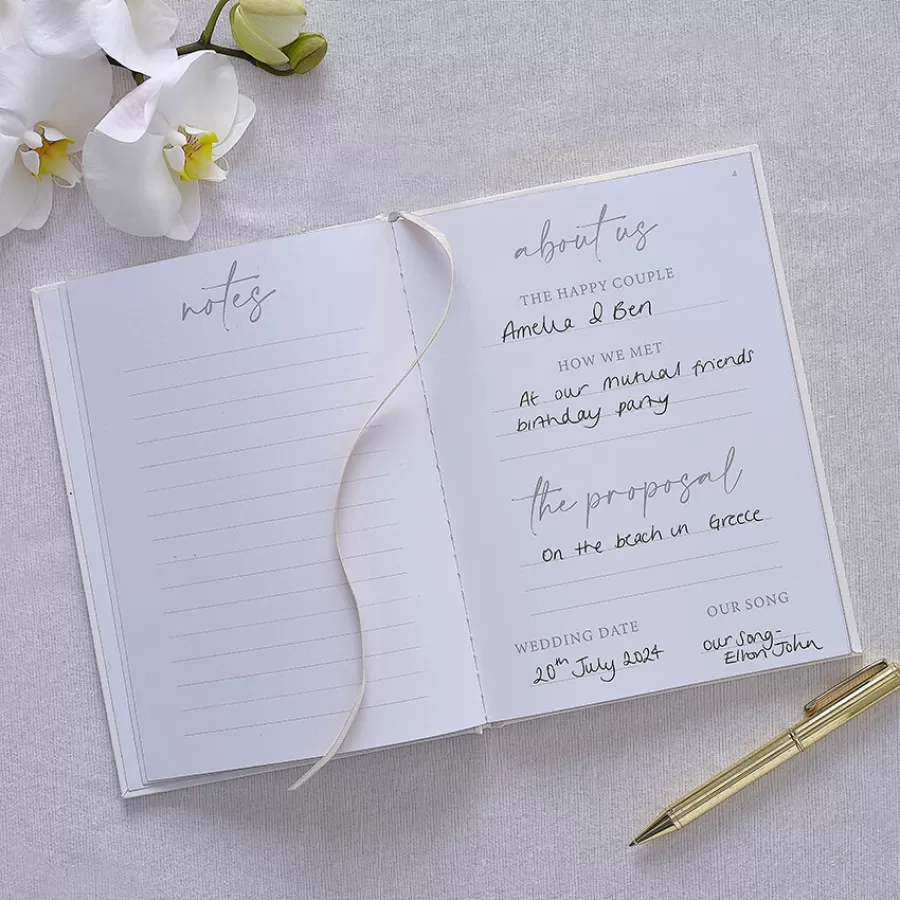 notes
4
about us
THE HAPPY COUPLE
Amelia & Ben
HOW WE MET
At our mutual friends
birthday party
the proposal
on the beach in Greece
WEDDING DATE
20th July 2024
OUR SONG
our song-
Elton John